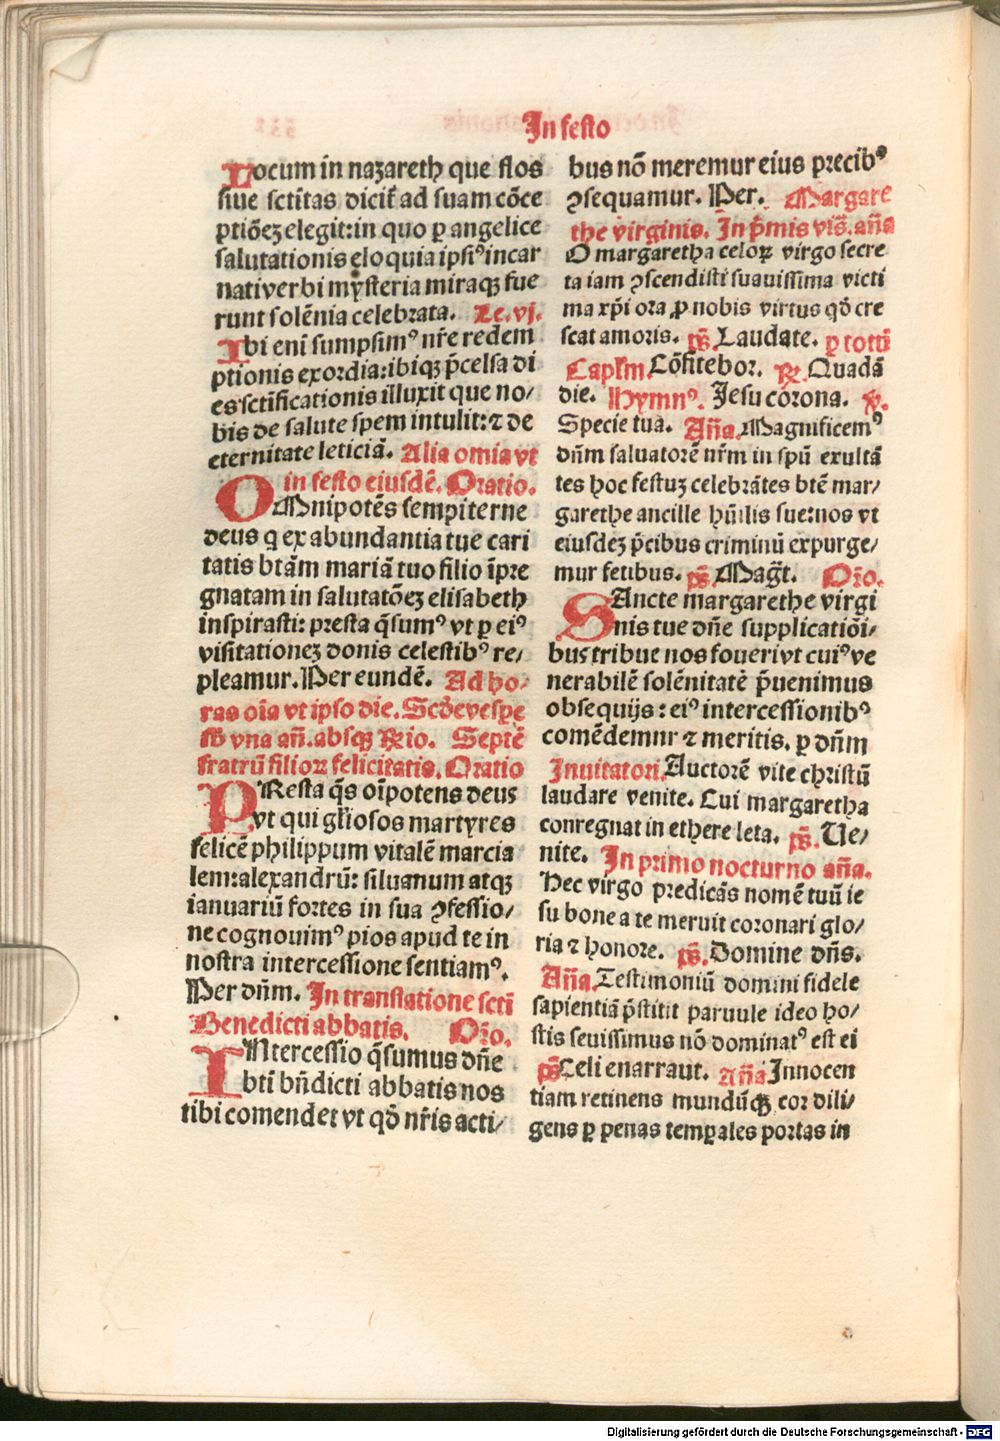 In festo
Locum in nazareth que flos
siue sctitas dicit̄ ad suam cōce
ptiōeꝫ elegit: in quo ꝑ angelice
salutationis eloquia ipsiꝰ incar
nati verbi mysteria miraqꝫ fue
runt solēnia celebrata. Le. vj.
Ibi eni sumpsimꝰ nr̄e redem
ptionis exordia: ibiqꝫ p̄celsa di
es sctificationis illuxit que no/
bis de salute spem intulit: ⁊ de
eternitate leticiā. Alia omia vt
in festo eiusdē. Oratio.
OMnipotēs sempiterne
deus q ex abundantia tue cari
tatis btām mariā tuo filio īpre
gnatam in salutatōeꝫ elisabeth
inspirasti: presta q̄sumꝰ vt ꝑ eiꝰ
visitationeꝫ donis celestibꝰ re/
pleamur. Per eundē. Ad ho/
ras oīa vt ipso die. Scd̄e vesꝑe
sb̄ vna añ. absqꝫ ℞io. Septē
fratrū filioꝝ felicitatis. Oratio
PResta q̄s oīpotens deus
vt qui gl̄iosos martyres
felicē philippum vitalē marcia
lem: alexandrū: siluanum atqꝫ
ianuariū fortes in sua ꝯfessio/
ne cognouimꝰ pios apud te in
nostra intercessione sentiamꝰ.
Per dn̄m. In translatione scti
Benedicti abbatis. Or̄o.
INtercessio q̄sumus dn̄e
bti bn̄dicti abbatis nos
tibi comendet vt qd̄ nr̄is acti/
bus nō meremur eius precibꝰ
ꝯsequamur. Per. Margare
the virginis. In p̄mis vīs. aña
O margaretha celoꝝ virgo secre
ta iam ꝯscendisti suauissima victi
ma xp̄i ora ꝓ nobis virtus qd̄ cre
scat amoris. ps̄. Laudate. ꝑ totū
Caplm Cōfitebor. ℞. Quadā
die. Hymnꝰ. Jesu corona. ℣.
Specie tua. Aña. Magnificemꝰ
dn̄m saluatorē nr̄m in spū exultā
tes hoc festuꝫ celebrātes btē mar/
garethe ancille hūilis sue: nos vt
eiusdeꝫ p̄cibus criminū expurge/
mur fetibus. ps̄. Mag̅t. Or̄o.
SAncte margarethe virgi
nis tue dn̄e supplicatiōi/
bus tribue nos foueri vt cuiꝰ ve
nerabilē solēnitatē p̄uenimus
obsequijs: eiꝰ intercessionibꝰ
comēdemur ⁊ meritis. ꝑ dn̄m
Inuitatori. Auctorē vite christū
laudare venite. Cui margaretha
conregnat in ethere leta. ps̄. Ue/
nite. In primo nocturno aña.
Hec virgo predicās nomē tuū ie
su bone a te meruit coronari glo/
ria ⁊ honore. ps̄. Domine dn̄s.
Aña. Testimoniū domini fidele
sapientiā p̄stitit paruule ideo ho/
stis seuissimus nō dominatꝰ est ei
ps̄. Celi enarraut. Aña Innocen
tiam retinens mundūqꝫ cor dili/
gens ꝑ penas temꝑales portas in
Digitalisierung gefördert durch die Deutsche Forschungsgemeinschaft - DFG